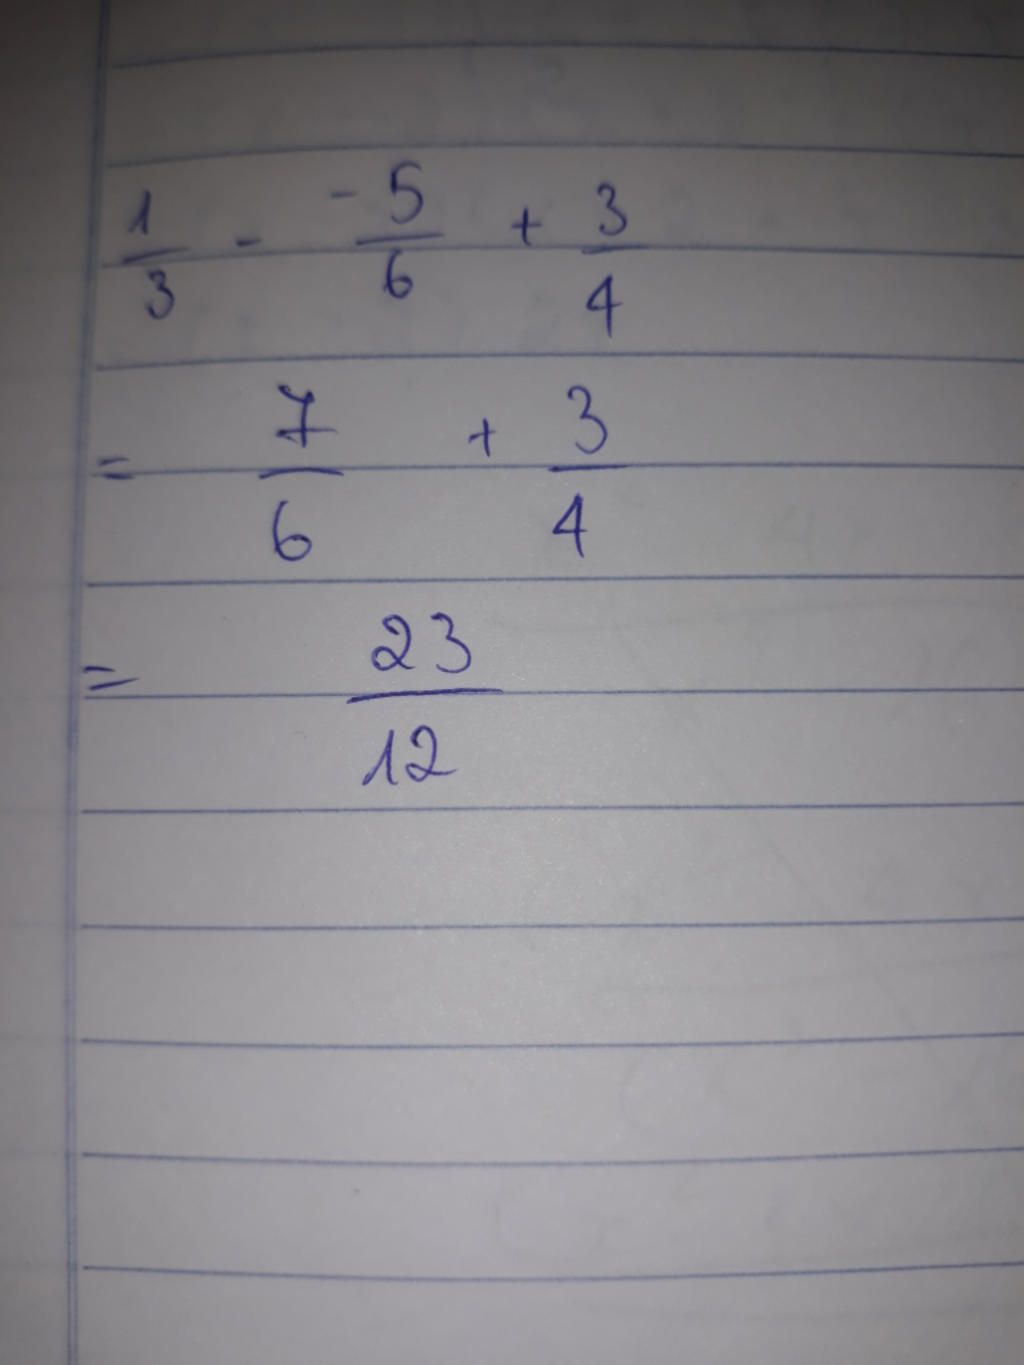 1/3 - -5/6 + 3/4
= 7/6 + 3/4
= 23/12